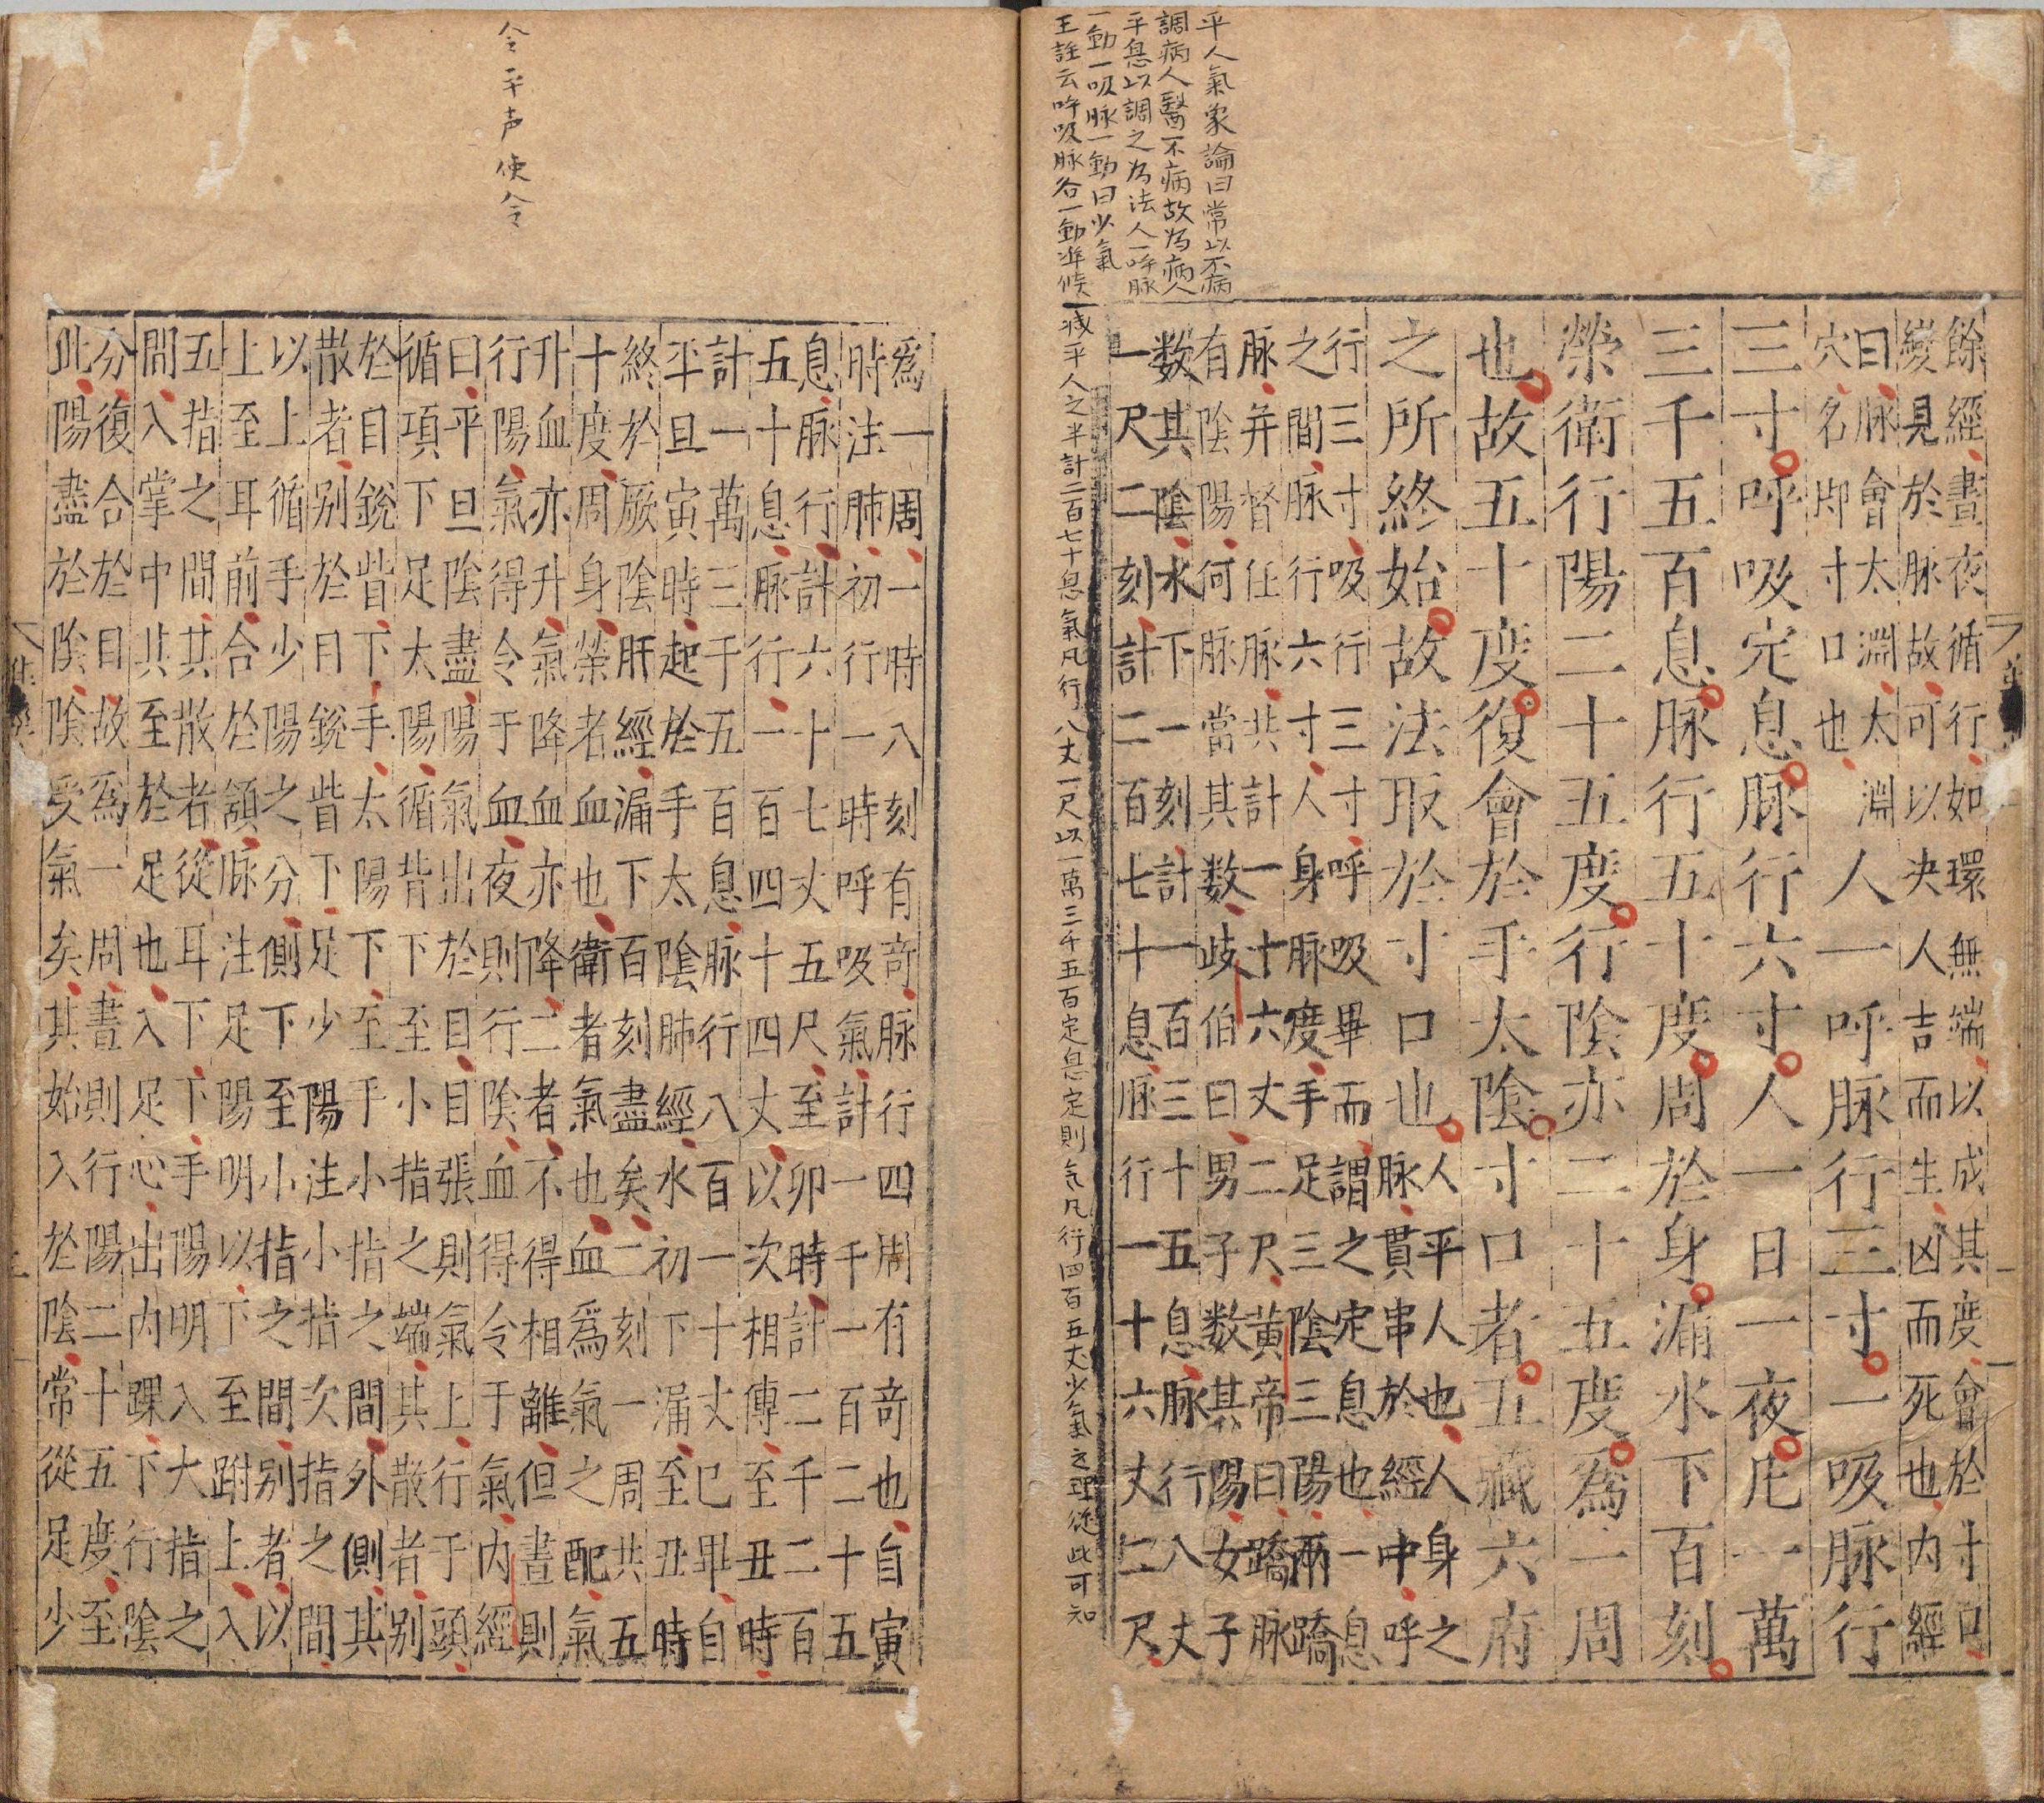 平人氣象論曰常以不病
調病人醫不病故為病人
平息以調之為法人一呼脉
一動一吸脉一動曰少氣
王註云呼吸脉各一動準候一減平人之半計二百七十息氣凡行八丈一尺以一萬三千五百定息定則气凡行四百五丈少氣之理從此可知
餘經晝夜循行如環無端以成其度會於寸口
變見於脉故可以决人吉而生凶而死也内經
曰脉會太淵太淵
穴名即寸口也
人一呼脉行三寸一吸脉行
三寸呼吸定息脉行六寸人一日一夜凡一萬
三千五百息脉行五十度周於身漏水下百刻
榮衛行陽二十五度行陰亦二十五度爲一周
也故五十度復會於手太陰寸口者五藏六府
之所終始故法取於寸口也
人平人人也人身之
脉貫串於經中呼
行三寸吸行三寸呼吸畢而謂之定息也一息
之間脉行六寸人身脉度手足三陰三陽兩蹻
脉并督任脉共計一十六丈二尺黃帝曰蹻脉
有陰陽何脉當其数歧伯曰男子数其陽女子
数其陰水下一刻計一百三十五息脉行八丈
一尺二刻計二百七十息脉行一十六丈二尺
令平声使令
爲一周一時八刻有奇脉行四周有奇也自寅
時注肺初行一時呼吸氣計一千一百二十五
息脉行計六十七丈五尺至卯時計二千二百
五十息脉行一百四十四丈以次相傳至丑時
計一萬三千五百息脉行八百一十丈已畢自
平旦寅時起於手太陰肺經水初下漏至丑時
終於厥陰肝經漏下百刻盡矣二刻一周共五
十度周身榮者血也衛者氣也血爲氣之配氣
升血亦升氣降血亦降二者不得相離但晝則
行陽氣得令于血夜則行陰血得令于氣内經
曰平旦陰盡陽氣出於目目張則氣上行于頭
循項下足太陽循背下至小指之端其散者别
於目銳眥下手太陽下至于小指之間外側其
散者别於目銳眥下足少陽注小指次指之間
以上循手少陽之分側下至小指之間别者以
上至耳前合於頷脉注足陽明以下至跗上入
五指之間其散者從耳下下手陽明入大指之
間入掌中其至於足也入足心出内踝下行陰
分復合於目故爲一周晝則行陽二十五度至
此陽盡於陰陰受氣矣其始入於陰常從足少